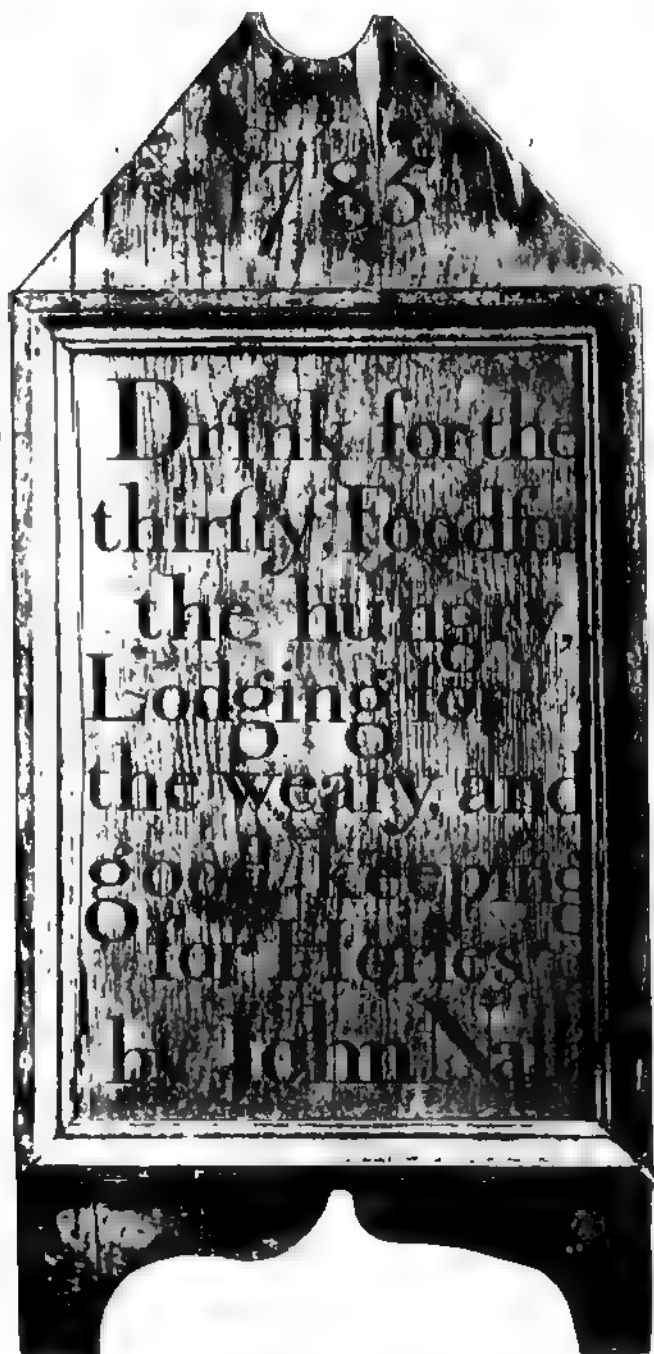 1785
Drink for the
thirſty, Food for
the hungry,
Lodging for
the weary, and
good keeping
for Horſes
by John